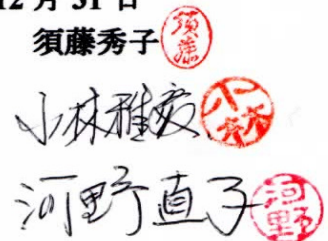 12月31日
須藤秀子 須藤
小林雅 小林
河野直子 河野